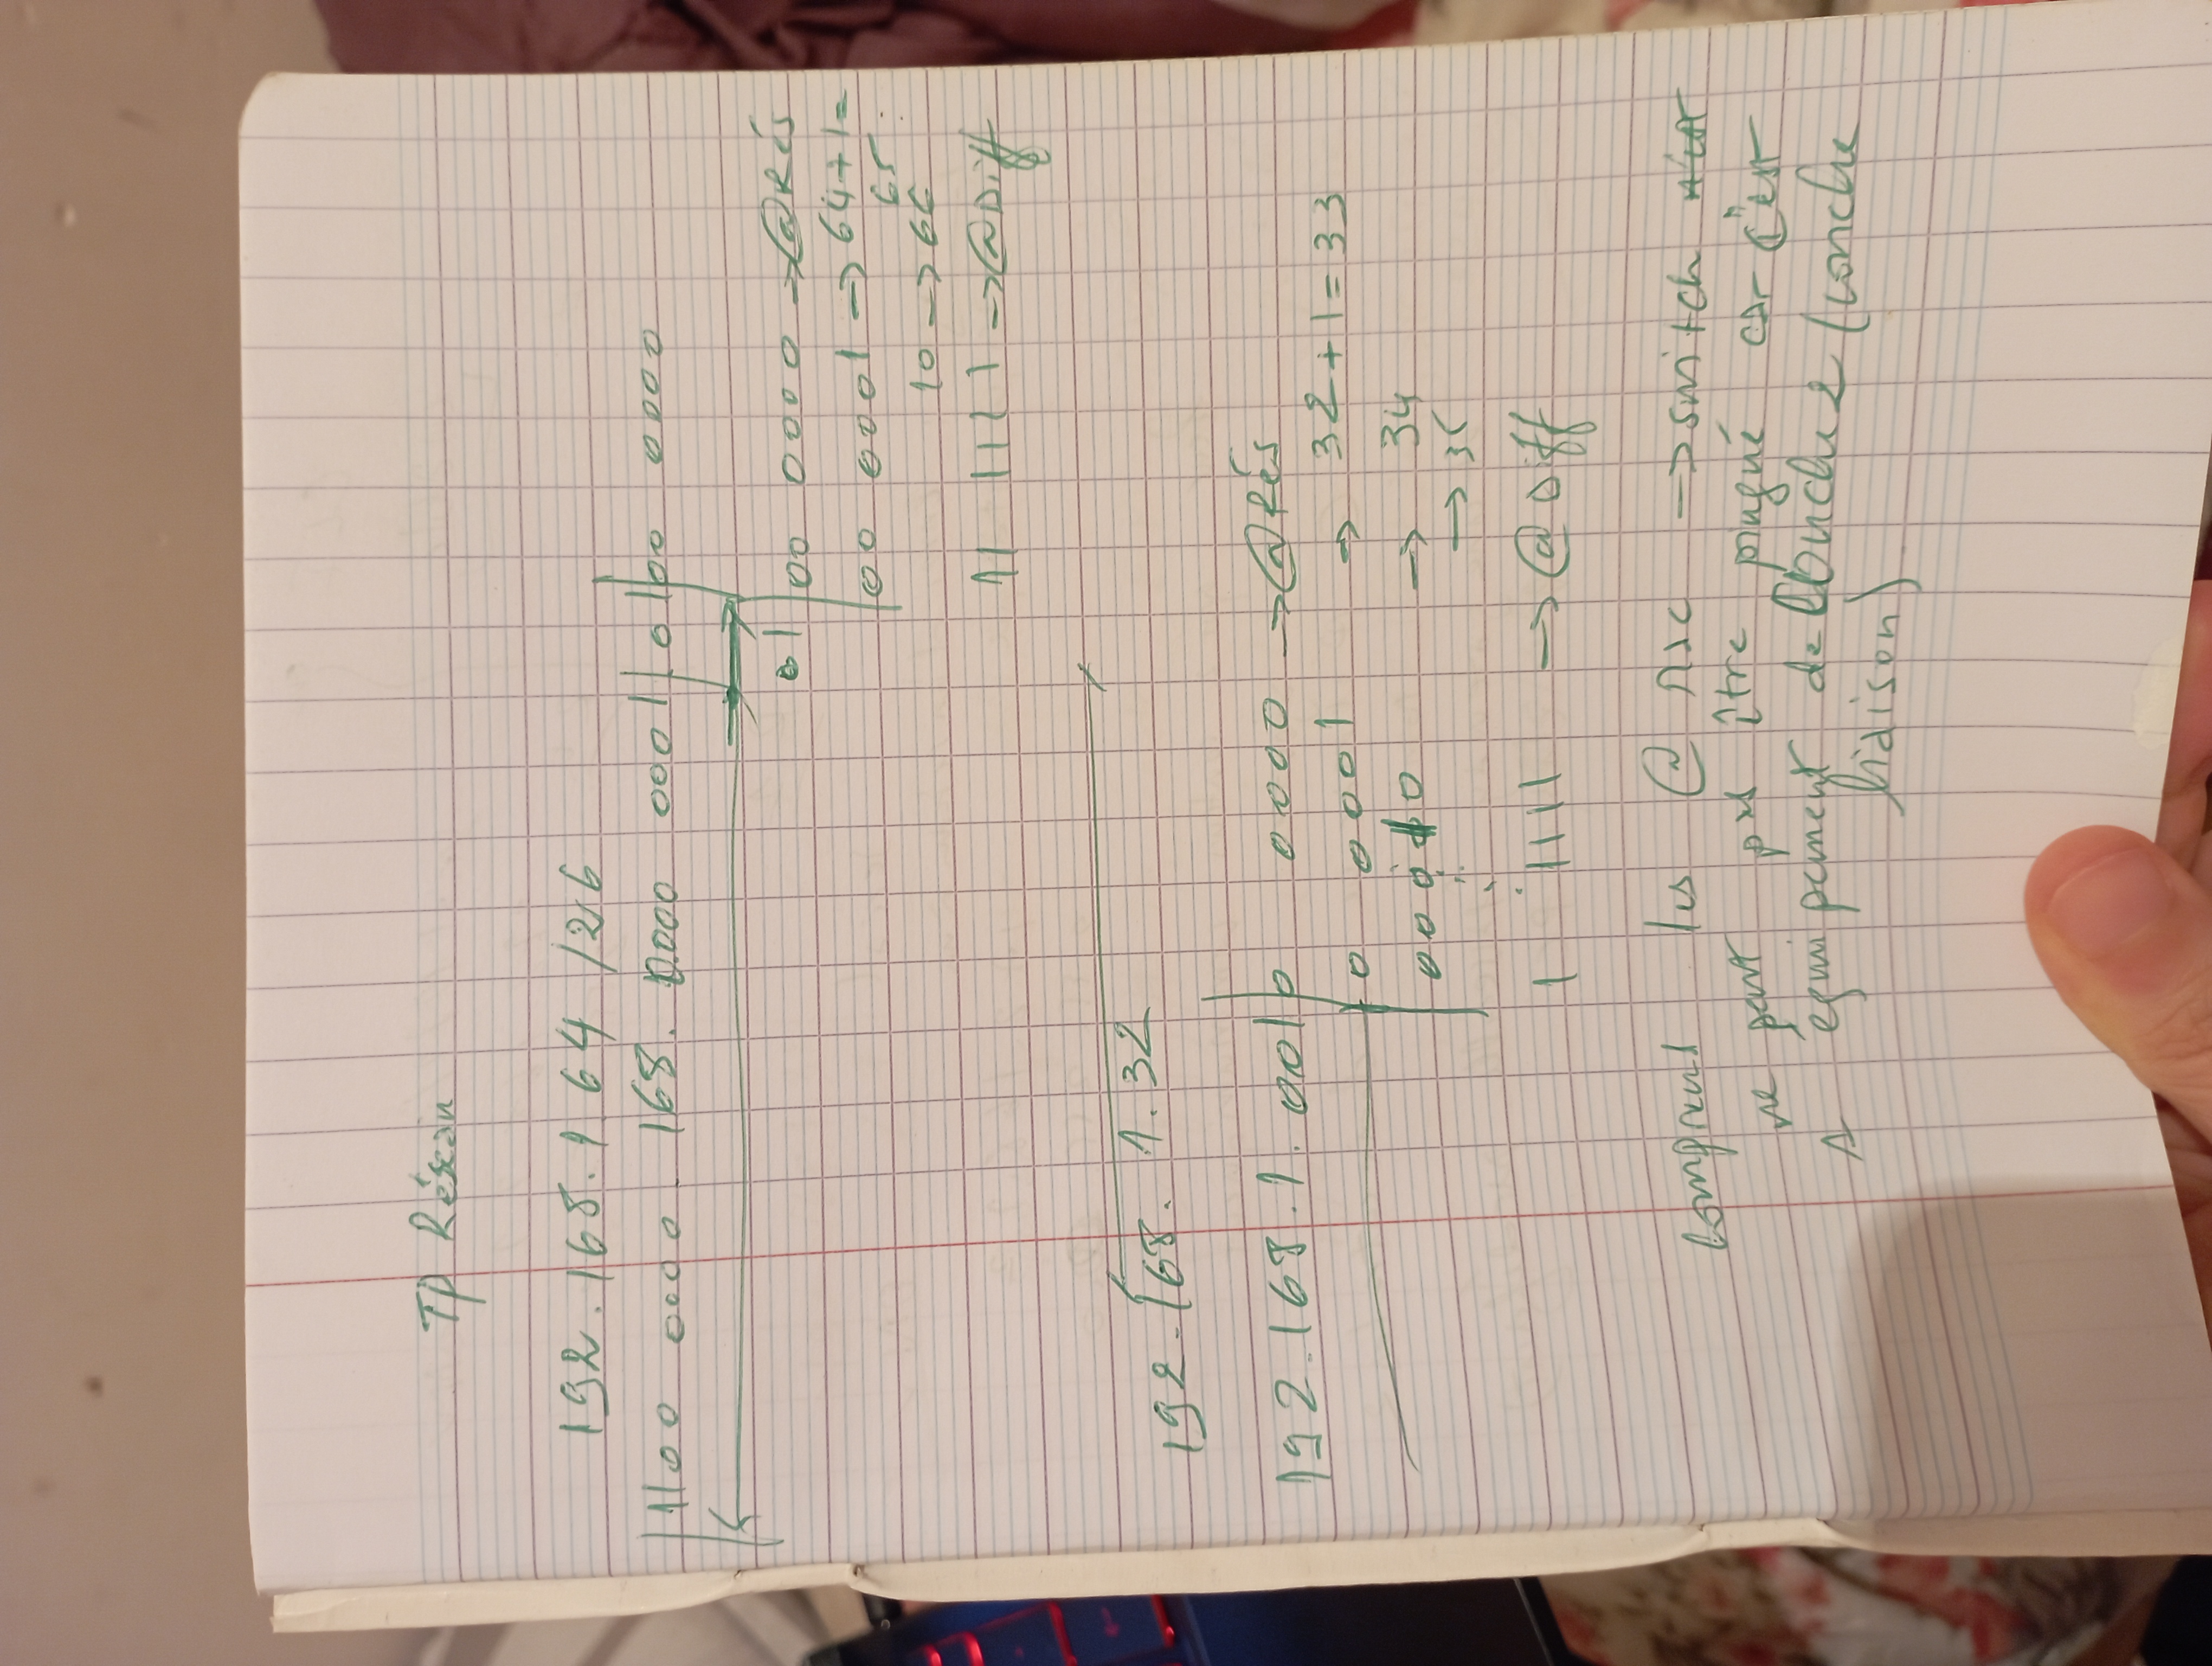 TP Réseau
192.168.1 64 /26
1100 0000. 168. 0000 0001 | 01 | 00 0000
01 | 00 0000 → @Rés
00 0001 → 64+1=
65
10 → 66
11 1111 → @Diff
192.168. 1.32
192.168.1.001 | 0 0000 → @Rés
0 0001 → 32+1=33
000 10 → 34
→ 35
1 1111 → @Diff
comprend les @ → switch
ne peut pas être pingué car c'est
1 équipement de couche 2 (couche
liaison)